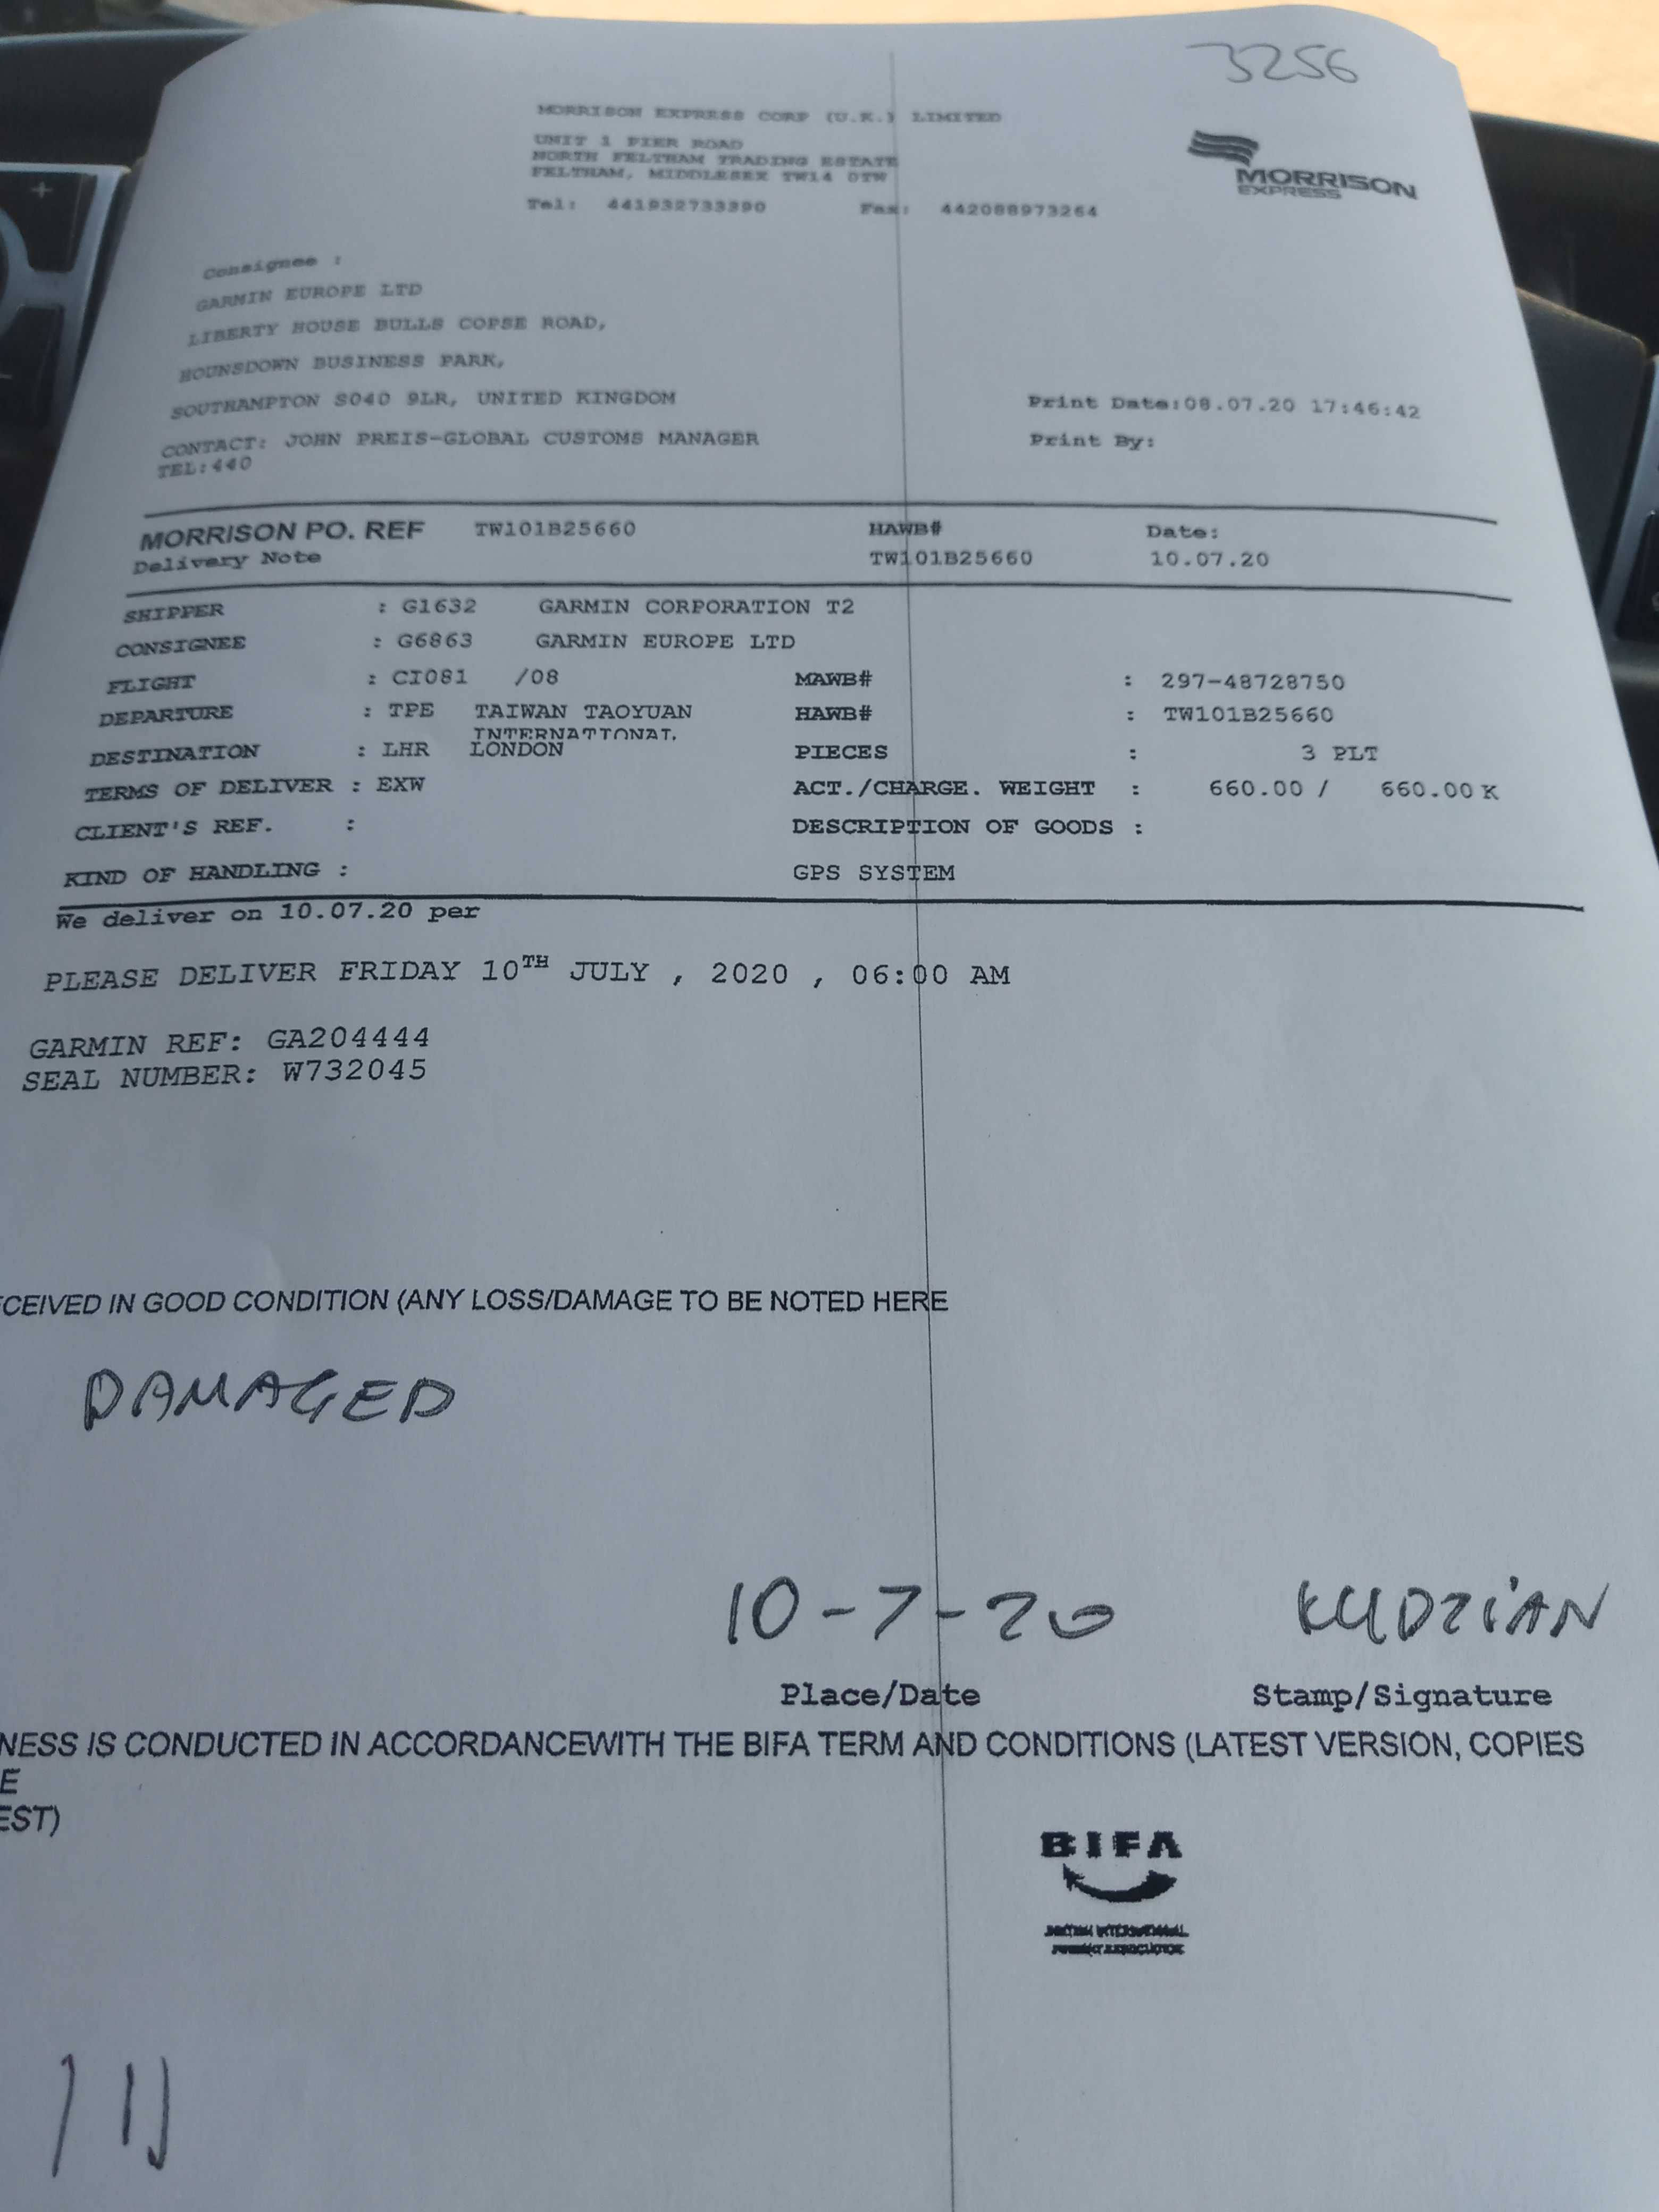 3256
MORRISON EXPRESS CORP (U.K.) LIMITED
UNIT 1 PIER ROAD
NORTH FELTHAM TRADING ESTATE
FELTHAM, MIDDLESEX TW14 0TW
Tel: 441932733390 Fax: 442088973264
MORRISON
EXPRESS
Consignee :
GARMIN EUROPE LTD
LIBERTY HOUSE BULLS COPSE ROAD,
HOUNSDOWN BUSINESS PARK,
SOUTHAMPTON SO40 9LR, UNITED KINGDOM
CONTACT: JOHN PREIS-GLOBAL CUSTOMS MANAGER
TEL:440
Print Date:08.07.20 17:46:42
Print By:
MORRISON PO. REF TW101B25660 HAWB# Date:
Delivery Note TW101B25660 10.07.20
SHIPPER : G1632 GARMIN CORPORATION T2
CONSIGNEE : G6863 GARMIN EUROPE LTD
FLIGHT : CI081 /08 MAWB# : 297-48728750
DEPARTURE : TPE TAIWAN TAOYUAN HAWB# : TW101B25660
INTERNATIONAL
DESTINATION : LHR LONDON PIECES : 3 PLT
TERMS OF DELIVER : EXW ACT./CHARGE. WEIGHT : 660.00 / 660.00 K
CLIENT'S REF. : DESCRIPTION OF GOODS :
KIND OF HANDLING : GPS SYSTEM
We deliver on 10.07.20 per
PLEASE DELIVER FRIDAY 10TH JULY , 2020 , 06:00 AM
GARMIN REF: GA204444
SEAL NUMBER: W732045
CEIVED IN GOOD CONDITION (ANY LOSS/DAMAGE TO BE NOTED HERE
DAMAGED
10-7-20 KUDZIAN
Place/Date Stamp/Signature
NESS IS CONDUCTED IN ACCORDANCEWITH THE BIFA TERM AND CONDITIONS (LATEST VERSION, COPIES
E
EST)
BIFA